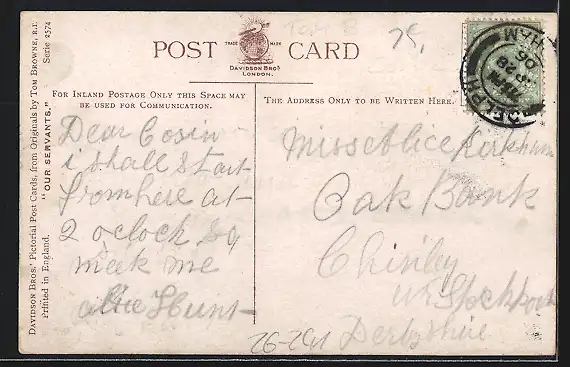 POST CARD
TRADE MARK
DAVIDSON BROS
LONDON.
FOR INLAND POSTAGE ONLY THIS SPACE MAY
BE USED FOR COMMUNICATION.
THE ADDRESS ONLY TO BE WRITTEN HERE.
DAVIDSON BROS.' Pictorial Post Cards, from Originals by TOM BROWNE, R.I. Serie 2574
Printed in England. "OUR SERVANTS."
Dear Cosin
i shall start
from here at
2 oclock so
meek me
alice Hunt
Miss Alice Kirkham
Oak Bank
Chinley
nr Stockport
Derbyshire
26-241